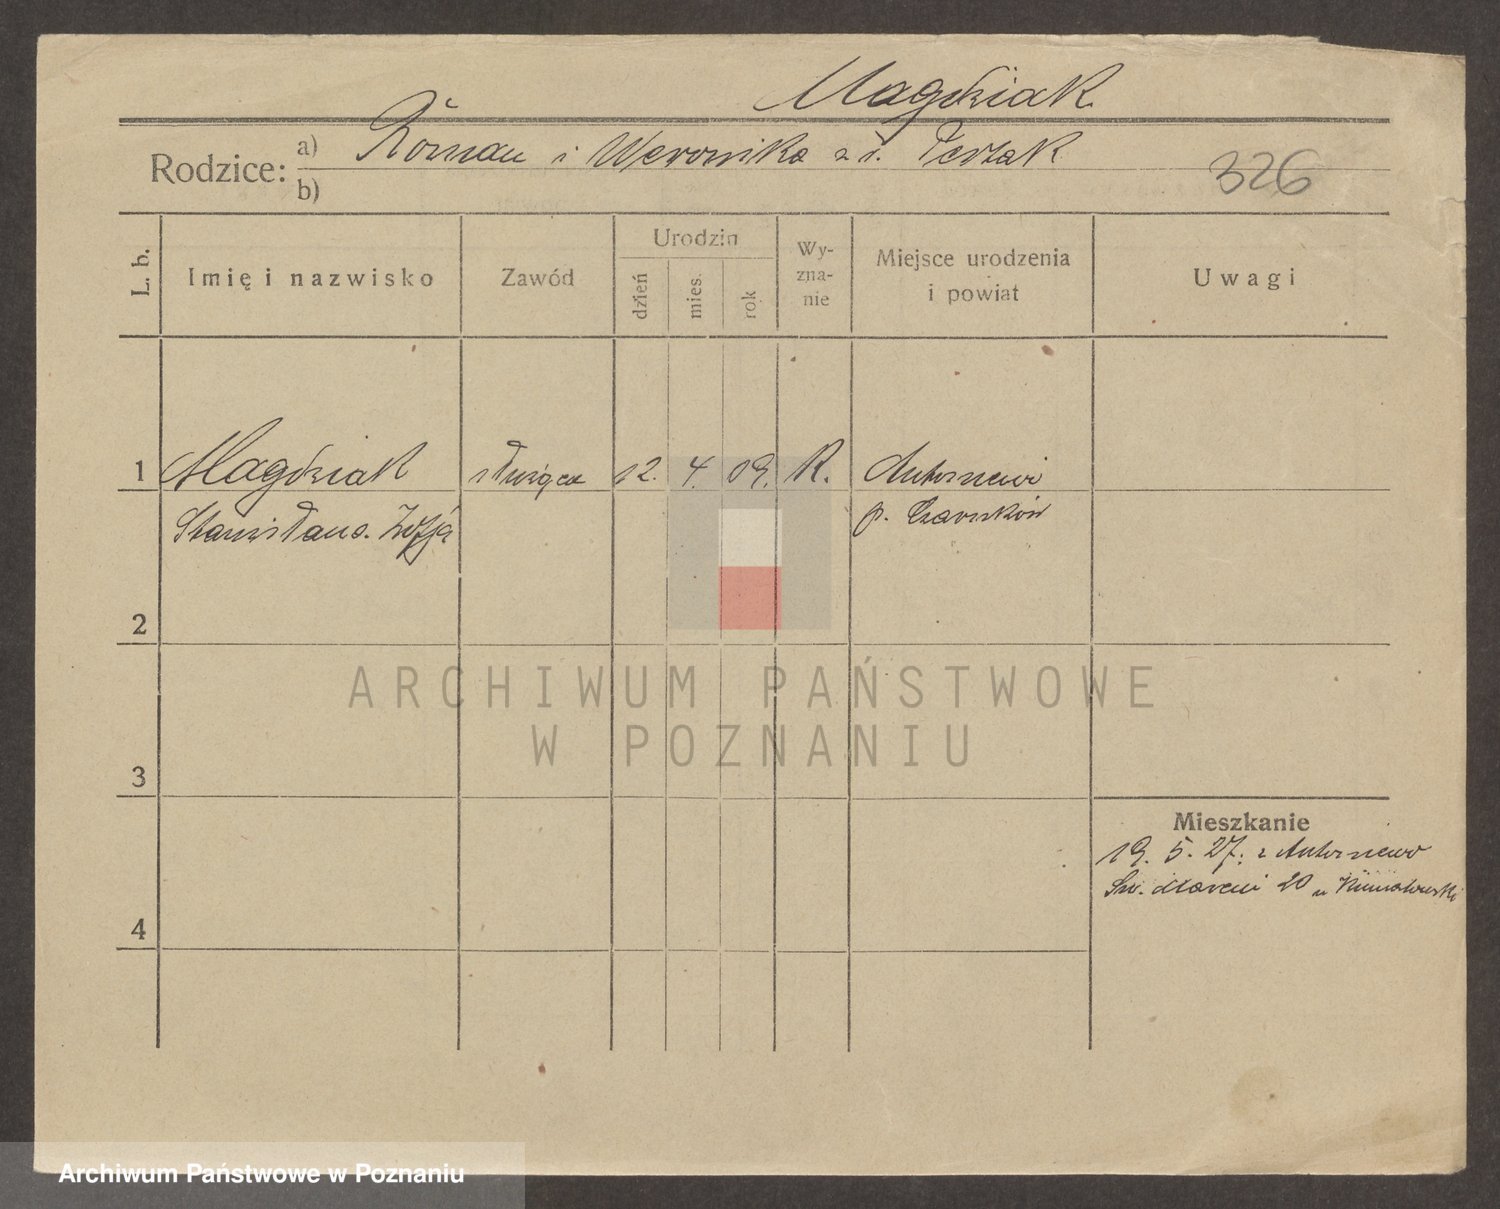 Magdziak
Rodzice: a) Roman i Weronika z d. Perzak
b)
326
L. b.
Imię i nazwisko
Zawód
Urodzin
dzień
mies.
rok
Wy-
zna-
nie
Miejsce urodzenia
i powiat
Uwagi
1 Magdziak służąca 12. 4. 09. R. Antoniewo
Stanisława. Zofja p. Czarnków
2
ARCHIWUM PAŃSTWOWE
W POZNANIU
3
Mieszkanie
19. 5. 27. z Antoniewo
Św. Marcin 20 u
4
Archiwum Państwowe w Poznaniu